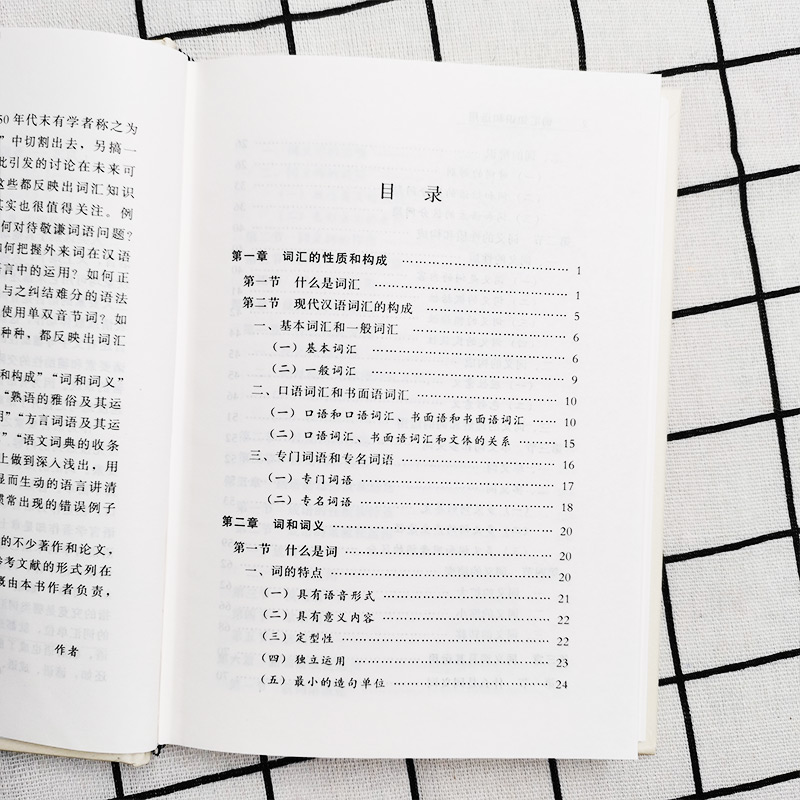 50年代末有学者称之为
”中切割出去，另搞一
此引发的讨论在未来可
这些都反映出词汇知识
其实也很值得关注。例
何对待敬谦词语问题？
如何把握外来词在汉语
语言中的运用？如何正
与之纠结难分的语法
使用单双音节词？如
种种，都反映出词汇
和构成”“词和词义”
“熟语的雅俗及其运
用”“方言词语及其运
”“语文词典的收条
上做到深入浅出，用
显而生动的语言讲清
惯常出现的错误例子
的不少著作和论文，
参考文献的形式列在
概由本书作者负责，
作者
目 录
第一章 词汇的性质和构成 …… 1
第一节 什么是词汇 …… 1
第二节 现代汉语词汇的构成 …… 5
一、基本词汇和一般词汇 …… 6
（一）基本词汇 …… 6
（二）一般词汇 …… 9
二、口语词汇和书面语词汇 …… 10
（一）口语和口语词汇、书面语和书面语词汇 …… 10
（二）口语词汇、书面语词汇和文体的关系 …… 15
三、专门词语和专名词语 …… 16
（一）专门词语 …… 17
（二）专名词语 …… 18
第二章 词和词义 …… 20
第一节 什么是词 …… 20
一、词的特点 …… 20
（一）具有语音形式 …… 21
（二）具有意义内容 …… 22
（三）定型性 …… 22
（四）独立运用 …… 23
（五）最小的造句单位 …… 24